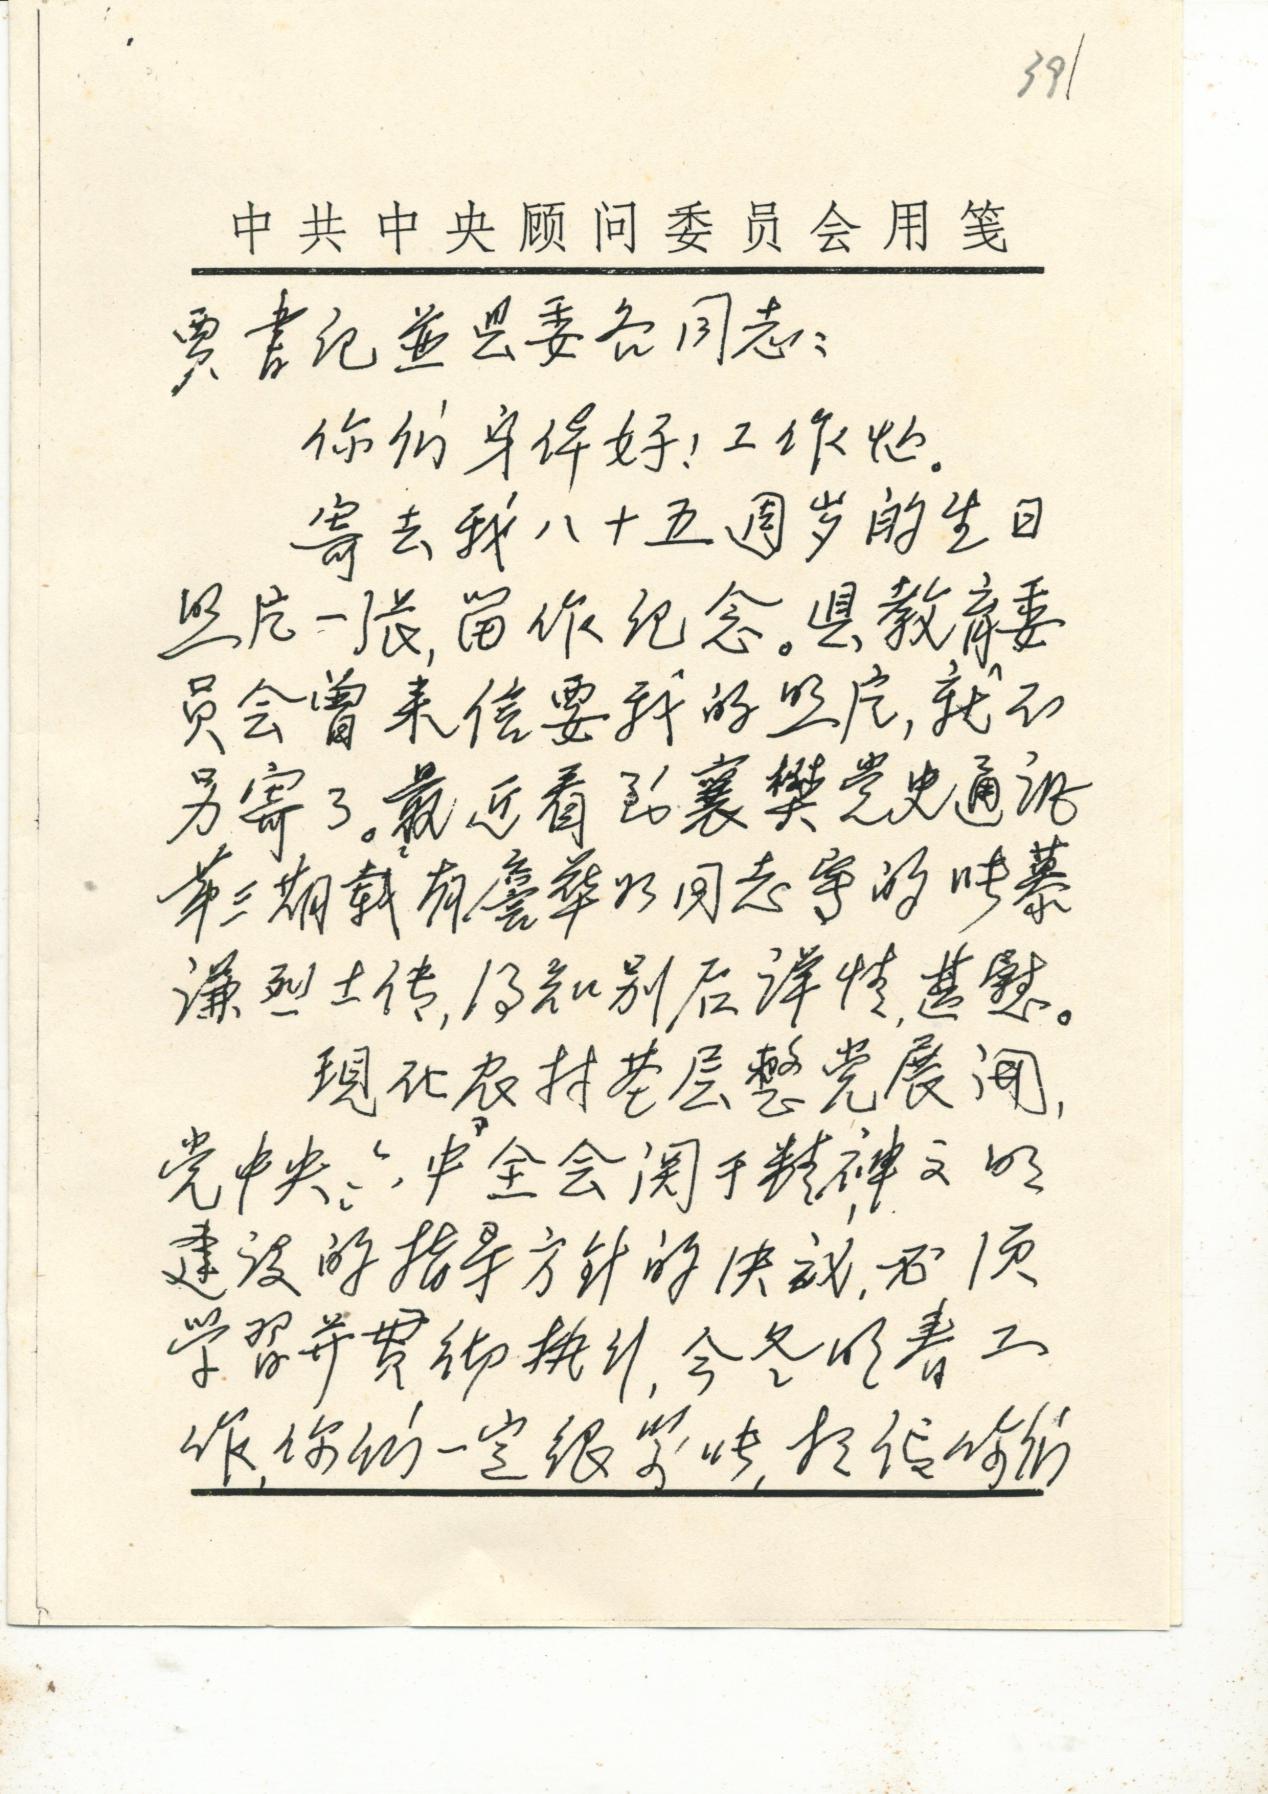 391
中共中央顾问委员会用笺
贾书记並县委各同志:
你们身体好!工作忙。
寄去我八十五週岁的生日
照片一张,留作纪念。县教育委
员会曾来信要我的照片,就不
另寄了。最近看到襄樊党史通讯
第三期载有詹华如同志写的叶慕
谦烈士传,得知别后详情,甚慰。
現在农村基层整党展開,
党中央:六中全会関于精神文明
建设的指导方针的决议,必须
学習并贯彻执行,今冬明春工
作,你们一定很繁忙,相信你们